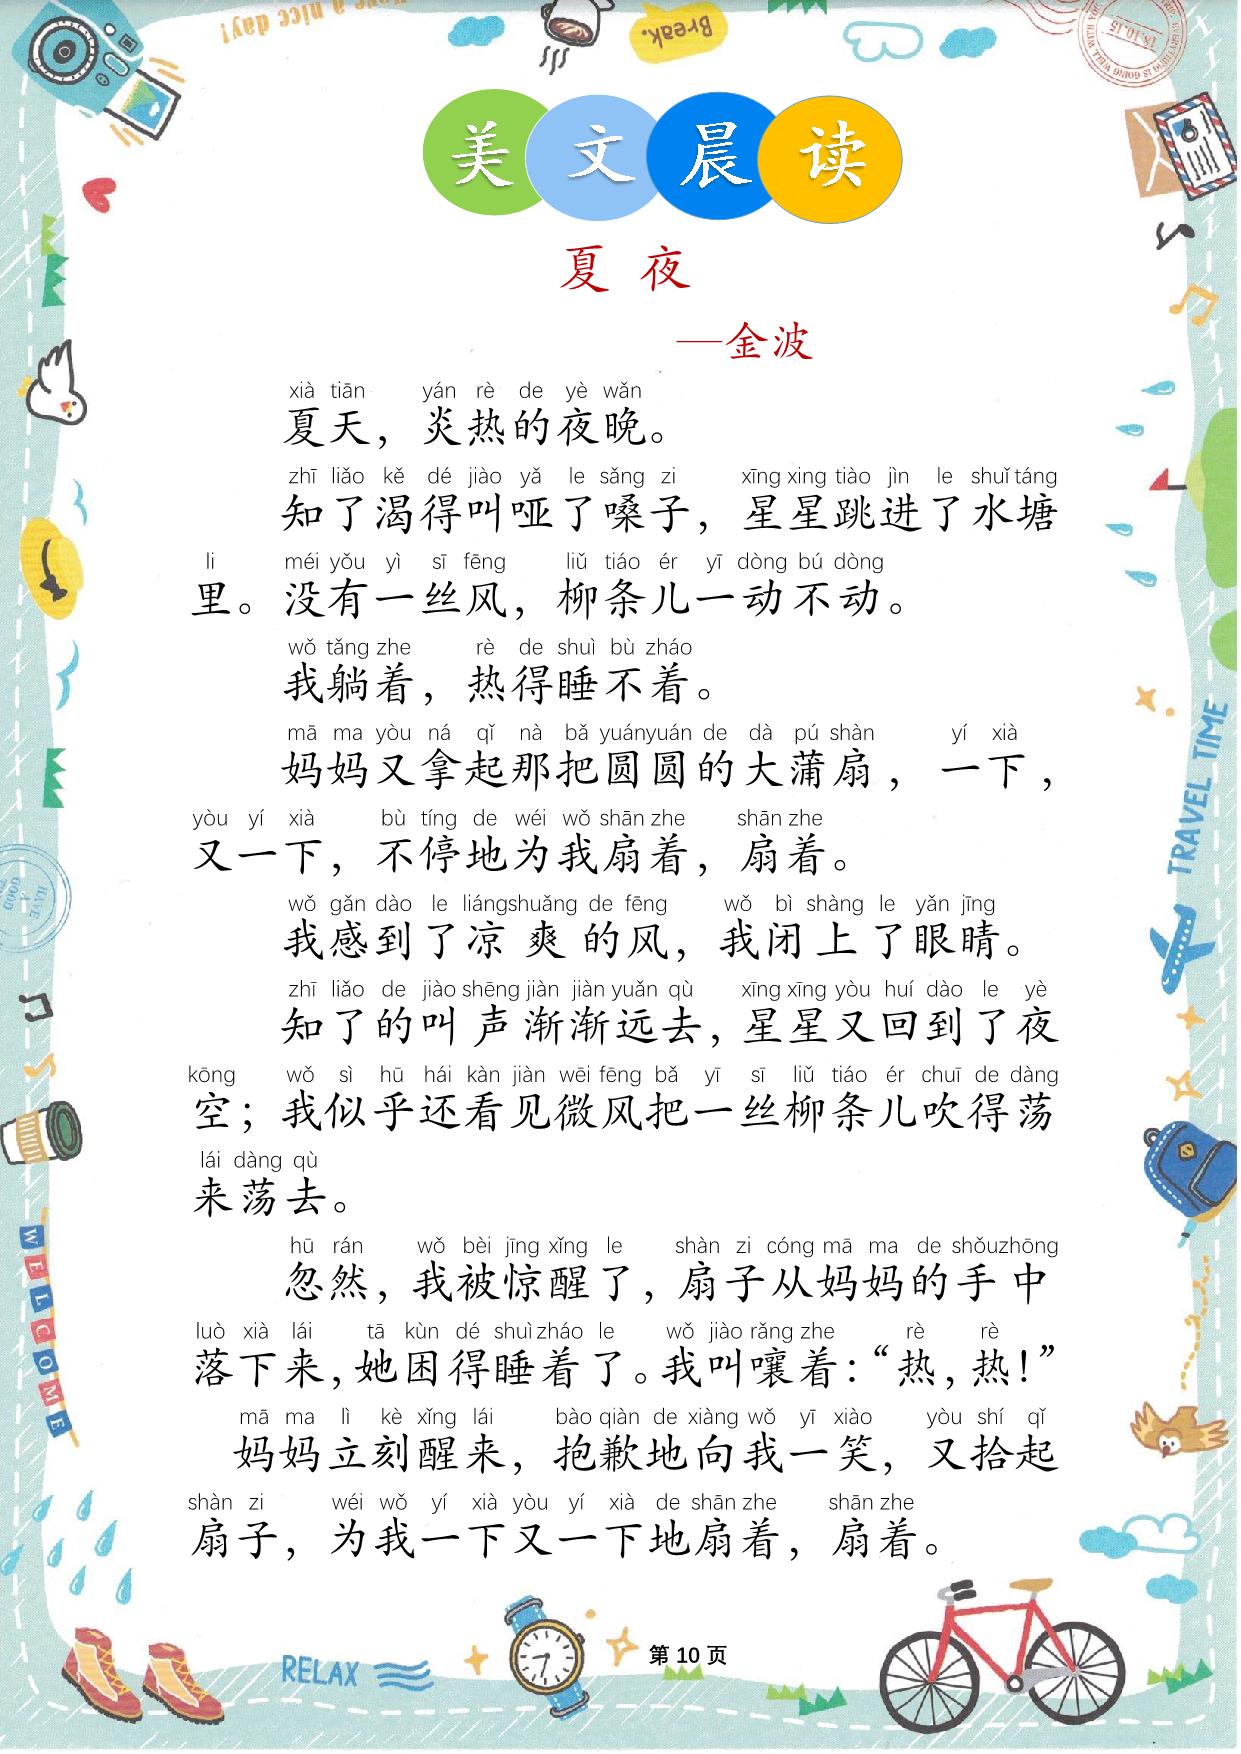 Have a nice day!
Break.
美文晨读
夏 夜
—金波
xià tiān yán rè de yè wǎn
夏天，炎热的夜晚。
zhī liǎo kě dé jiào yǎ le sǎng zi xīng xing tiào jìn le shuǐ táng
知了渴得叫哑了嗓子，星星跳进了水塘
li méi yǒu yì sī fēng liǔ tiáo ér yī dòng bú dòng
里。没有一丝风，柳条儿一动不动。
wǒ tǎng zhe rè de shuì bù zháo
我躺着，热得睡不着。
mā ma yòu ná qǐ nà bǎ yuányuán de dà pú shàn yí xià
妈妈又拿起那把圆圆的大蒲扇，一下，
yòu yí xià bù tíng de wéi wǒ shān zhe shān zhe
又一下，不停地为我扇着，扇着。
wǒ gǎn dào le liángshuǎng de fēng wǒ bì shàng le yǎn jīng
我感到了凉爽的风，我闭上了眼睛。
zhī liǎo de jiào shēng jiàn jiàn yuǎn qù xīng xīng yòu huí dào le yè
知了的叫声渐渐远去，星星又回到了夜
kōng wǒ sì hū hái kàn jiàn wēi fēng bǎ yī sī liǔ tiáo ér chuī de dàng
空；我似乎还看见微风把一丝柳条儿吹得荡
lái dàng qù
来荡去。
hū rán wǒ bèi jīng xǐng le shàn zi cóng mā ma de shǒuzhōng
忽然，我被惊醒了，扇子从妈妈的手中
luò xià lái tā kùn dé shuì zháo le wǒ jiào rǎng zhe rè rè
落下来，她困得睡着了。我叫嚷着：“热，热！”
mā ma lì kè xǐng lái bào qiàn de xiàng wǒ yī xiào yòu shí qǐ
妈妈立刻醒来，抱歉地向我一笑，又拾起
shàn zi wéi wǒ yí xià yòu yí xià de shān zhe shān zhe
扇子，为我一下又一下地扇着，扇着。
TRAVEL TIME
WELCOME
RELAX
第 10 页